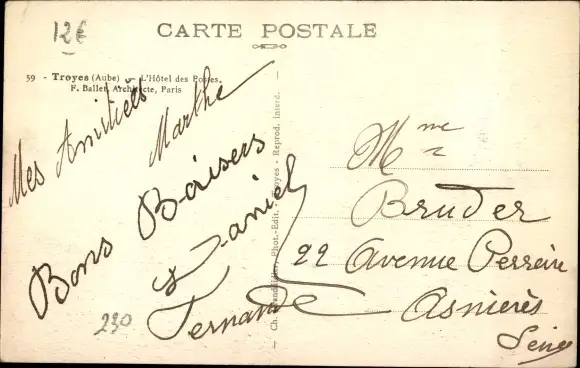 12€
CARTE POSTALE
59 - Troyes (Aube) - L'Hôtel des Postes.
F. Ballet, Architecte, Paris
Mes Amitiés
Marthe
Bons Baisers
Daniel
Fernande
230
Phot.-Edit. - Troyes - Reprod. interd.
Mme
Bruder
22 Avenue Perreire
Asnières
Seine